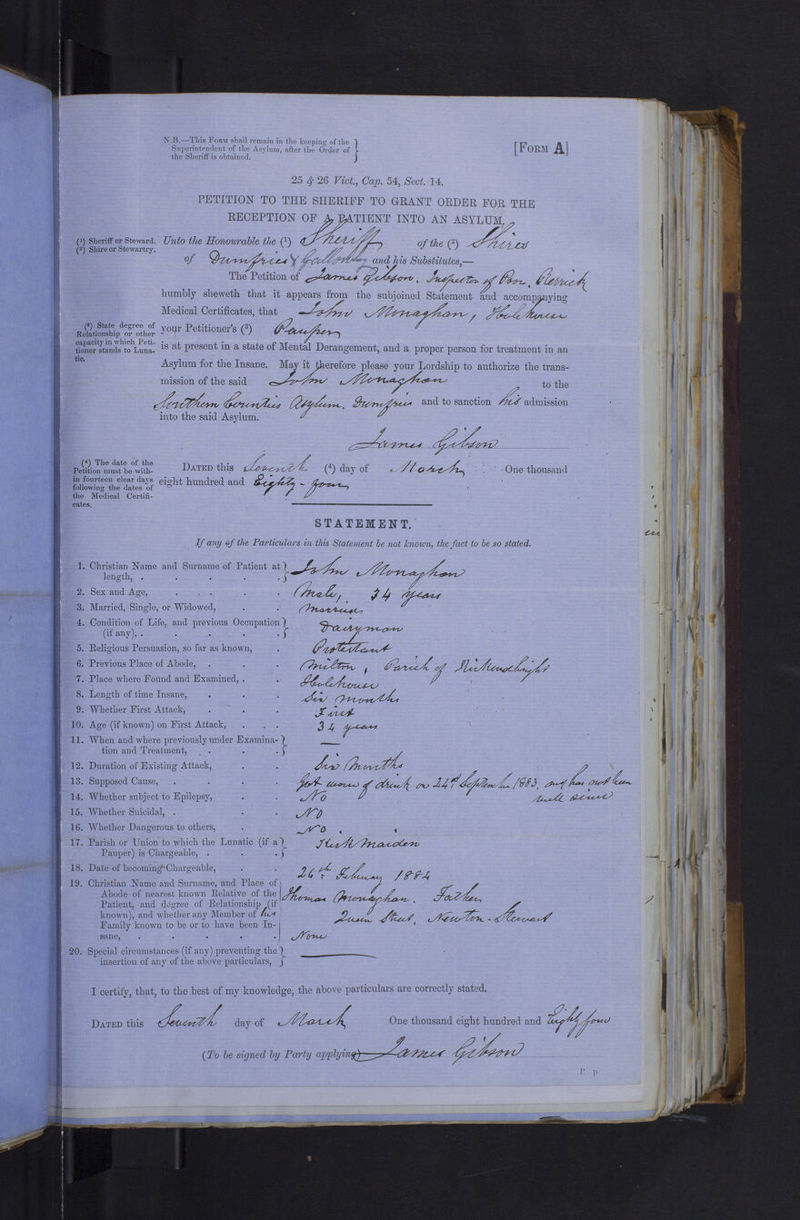 N.B.—This Form shall remain in the keeping of the
Superintendent of the Asylum, after the Order of
the Sheriff is obtained.
[FORM A]
25 & 26 Vict., Cap. 54, Sect. 14.
PETITION TO THE SHERIFF TO GRANT ORDER FOR THE
RECEPTION OF A PATIENT INTO AN ASYLUM.
(1) Sheriff or Steward.
(2) Shire or Stewartry.
Unto the Honourable the (1) Sheriff of the (2) Shires
of Dumfries & Galloway and his Substitutes,—
The Petition of James Gibson, Inspector of Poor, Rerrick
humbly sheweth that it appears from the subjoined Statement and accompanying
Medical Certificates, that John Monaghan, Holehouse
(3) State degree of
Relationship or other
capacity in which Peti-
tioner stands to Luna-
tic.
your Petitioner's (3) Pauper
is at present in a state of Mental Derangement, and a proper person for treatment in an
Asylum for the Insane. May it therefore please your Lordship to authorize the trans-
mission of the said John Monaghan to the
Southern Counties Asylum, Dumfries and to sanction his admission
into the said Asylum.
James Gibson
(4) The date of the
Petition must be with-
in fourteen clear days
following the dates of
the Medical Certifi-
cates.
DATED this Seventh (4) day of March One thousand
eight hundred and Eighty-four
STATEMENT.
If any of the Particulars in this Statement be not known, the fact to be so stated.
1. Christian Name and Surname of Patient at
length, . John Monaghan
2. Sex and Age, Male, 34 years
3. Married, Single, or Widowed, Married
4. Condition of Life, and previous Occupation
(if any), . Dairyman
5. Religious Persuasion, so far as known, Protestant
6. Previous Place of Abode, Milton, Parish of Kirkcudbright
7. Place where Found and Examined, Holehouse
8. Length of time Insane, Six months
9. Whether First Attack, First
10. Age (if known) on First Attack, 34 years
11. When and where previously under Examina-
tion and Treatment, —
12. Duration of Existing Attack, Six Months
13. Supposed Cause, Got worse of drink on 24th September 1883, and has not been
well since
14. Whether subject to Epilepsy, No
15. Whether Suicidal, No
16. Whether Dangerous to others, No
17. Parish or Union to which the Lunatic (if a
Pauper) is Chargeable, Kirkmaiden
18. Date of becoming Chargeable, 26th February 1884
19. Christian Name and Surname, and Place of
Abode of nearest known Relative of the
Patient, and degree of Relationship (if
known), and whether any Member of his
Family known to be or to have been In-
sane, Thomas Monaghan, Father
Queen Street, Newton-Stewart
None
20. Special circumstances (if any) preventing the
insertion of any of the above particulars, —
I certify, that, to the best of my knowledge, the above particulars are correctly stated.
DATED this Seventh day of March One thousand eight hundred and Eighty four
(To be signed by Party applying) James Gibson
P p